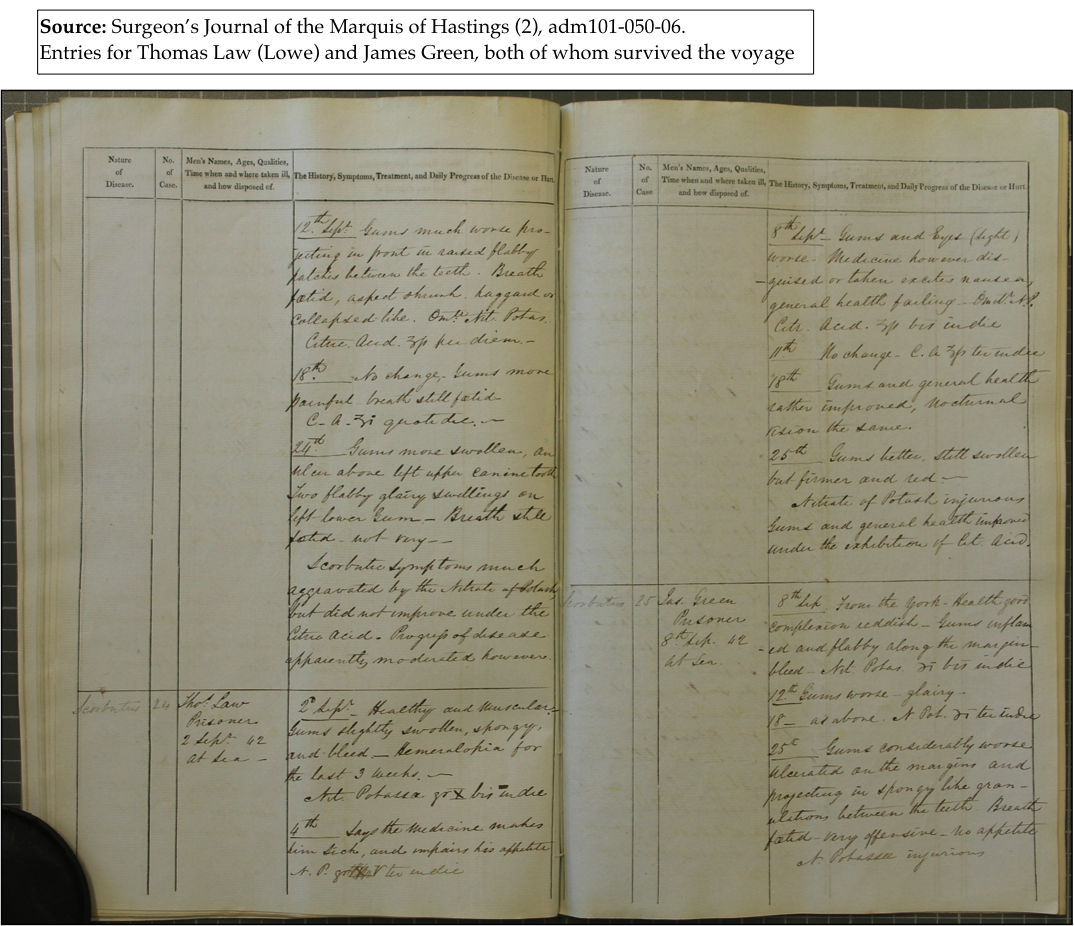 Source: Surgeon's Journal of the Marquis of Hastings (2), adm101-050-06.
Entries for Thomas Law (Lowe) and James Green, both of whom survived the voyage
Nature
of
Disease.
No.
of
Case.
Men's Names, Ages, Qualities,
Time when and where taken ill,
and how disposed of.
The History, Symptoms, Treatment, and Daily Progress of the Disease or Hurt.
12th Sept. Gums much worse pro-
jecting in front in raised flabby
patches between the teeth. Breath
fœtid, aspect shrunk haggard or
collapsed like. Omt. Nit. Potas.
Citric. Acid. per diem.-
18th. No change. Gums more
painful breath still fœtid
C. A. quotidie.
24th. Gums more swollen, an
ulcer above left upper canine tooth
Two flabby glairy swellings on
left lower Gum - Breath still
fœtid - not very -
Scorbutic symptoms much
aggravated by the Nitrate of Potash
but did not improve under the
Citric Acid. Progress of disease
apparently moderated however.
Scorbutus
24
Thos. Law
Prisoner
2 Sept. 42
At Sea -
2d Sept. Healthy and Muscular.
Gums slightly swollen, spongy,
and bleed - Hemeralopia for
the last 3 weeks. -
Nit. Potassæ gr X bis in die
4th Says the Medicine makes
him sick, and impairs his appetite
N. P. ter in die
Nature
of
Disease.
No.
of
Case
Men's Names, Ages, Qualities,
Time when and where taken ill,
and how disposed of.
The History, Symptoms, Treatment, and Daily Progress of the Disease or Hurt.
8th Sept. Gums and Eyes (sight)
worse. Medicine however dis-
-guised or taken excites nausea,
general health failing - Omt. N.P.
Citr. Acid. bis in die
11th No change - C. A ter in die
18th Gums and general health
rather improved, Nocturnal
vision the same.
25th Gums better, still swollen
but firmer and red -
Nitrate of Potash injurious
Gums and general health improved
under the exhibition of Cit. Acid.
Scorbutus
25
Jas. Green
Prisoner
8th Sep. 42
At Sea
8th Sep. From the York - Health good
complexion reddish - Gums inflam
-ed and flabby along the margin -
bleed - Nit. Potas. bis in die
12th Gums worse - glairy -
18 - as above. N Pot. ter in die
25th Gums considerably worse
ulcerated on the margins and
projecting in spongy like gran-
ulations between the teeth. Breath
fœtid - very offensive - no appetite
N. Potassæ injurious